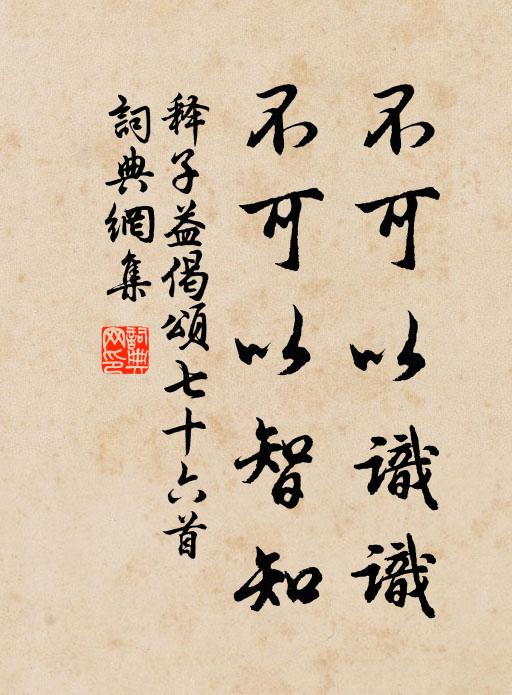 不可以識識
不可以智知
释子益偈頌七十六首
詞典網集
詞典网印